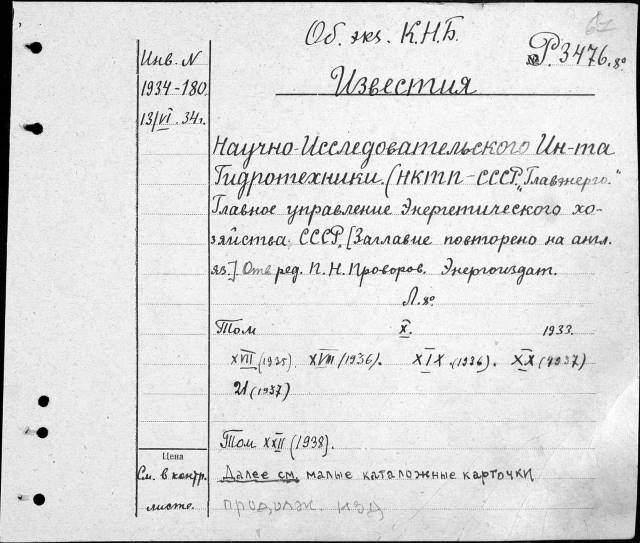 67
Об. экз. К.Н.Б.
№ Р.3476.8°
Инв. N
1934-180.
13/VI. 34г.
Известия
Научно-Исследовательского Ин-та
Гидротехники. (НКТП-СССР. "Главэнерго."
Главное управление Энергетического хо-
зяйства СССР. [Заглавие повторено на англ.
яз.]. Отв ред. П. Н. Проворов. Энергоиздат.
Л. 8°
Том X. 1933.
XVII (1935). XVIII (1936). XIX (1936). XX (1937)
21 (1937)
Том XXII (1938).
Цена
См. в контр.
листе.
Далее см. малые каталожные карточки
продолж. изд